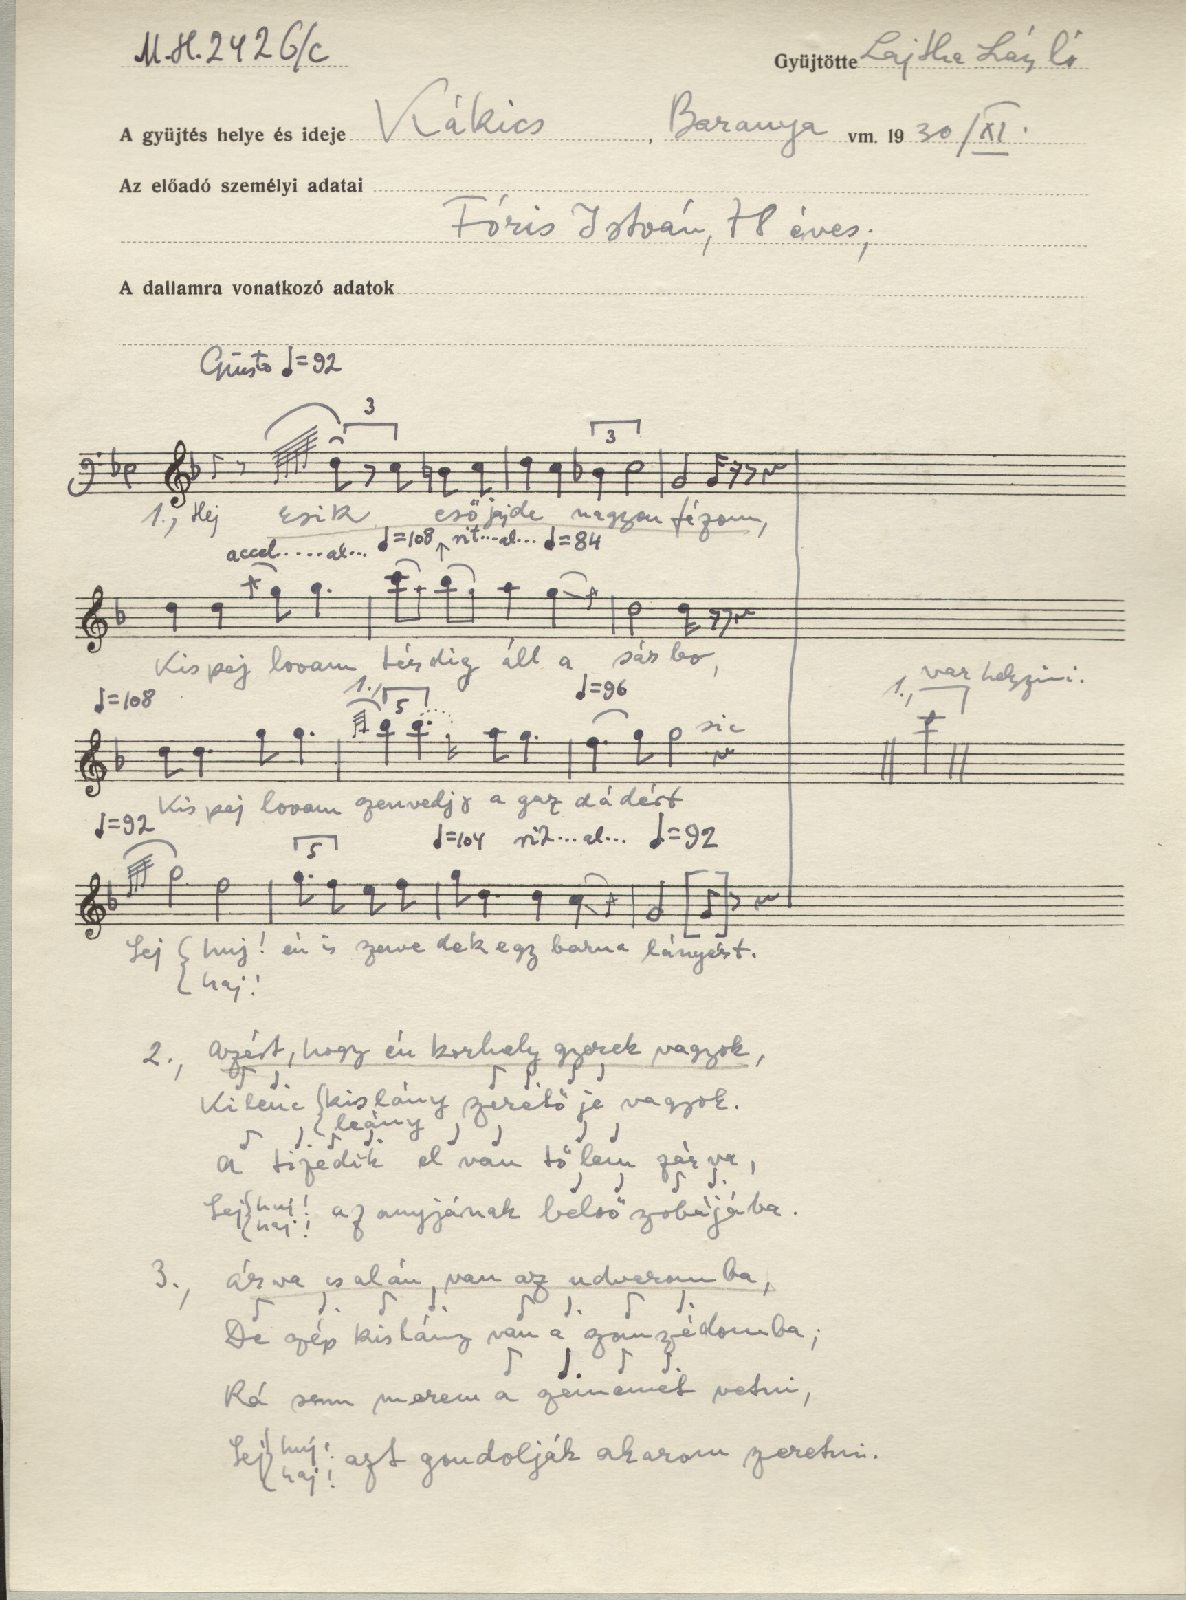 M.H.2426/c
Gyüjtötte Lajtha László
A gyüjtés helye és ideje Kákics, Baranya vm. 1930/XI.
Az előadó személyi adatai
Fóris István, 78 éves;
A dallamra vonatkozó adatok
Giusto ♩=92
3
3
1., Hej esik eső jajde nagyon fézom,
accel.....al... ♩=108 rit...al... ♩=84
Kis pej lovam térdig áll a sárbo,
♩=108 1., 5 ♩=96 sic 1., var helyzini.
Kis pej lovam zenvedj a gazdádért
♩=92 5 ♩=104 rit...al... ♩=92
Sej { huj! én is zenvedek egy barna lányért.
haj!
2., Azért, hogy én korhely gyerek vagyok,
Kilenc { kislány zeretője vagyok.
leány
A tizedik el van tőlem zárva,
Sej { huj! az anyjának belső zobájába.
haj!
3., Árva csalán, van az udveromba,
De zép kislány van a zomzédomba;
Rá sem merem a zememet vetni,
Sej { huj! azt gondolják akarom zeretni.
haj!